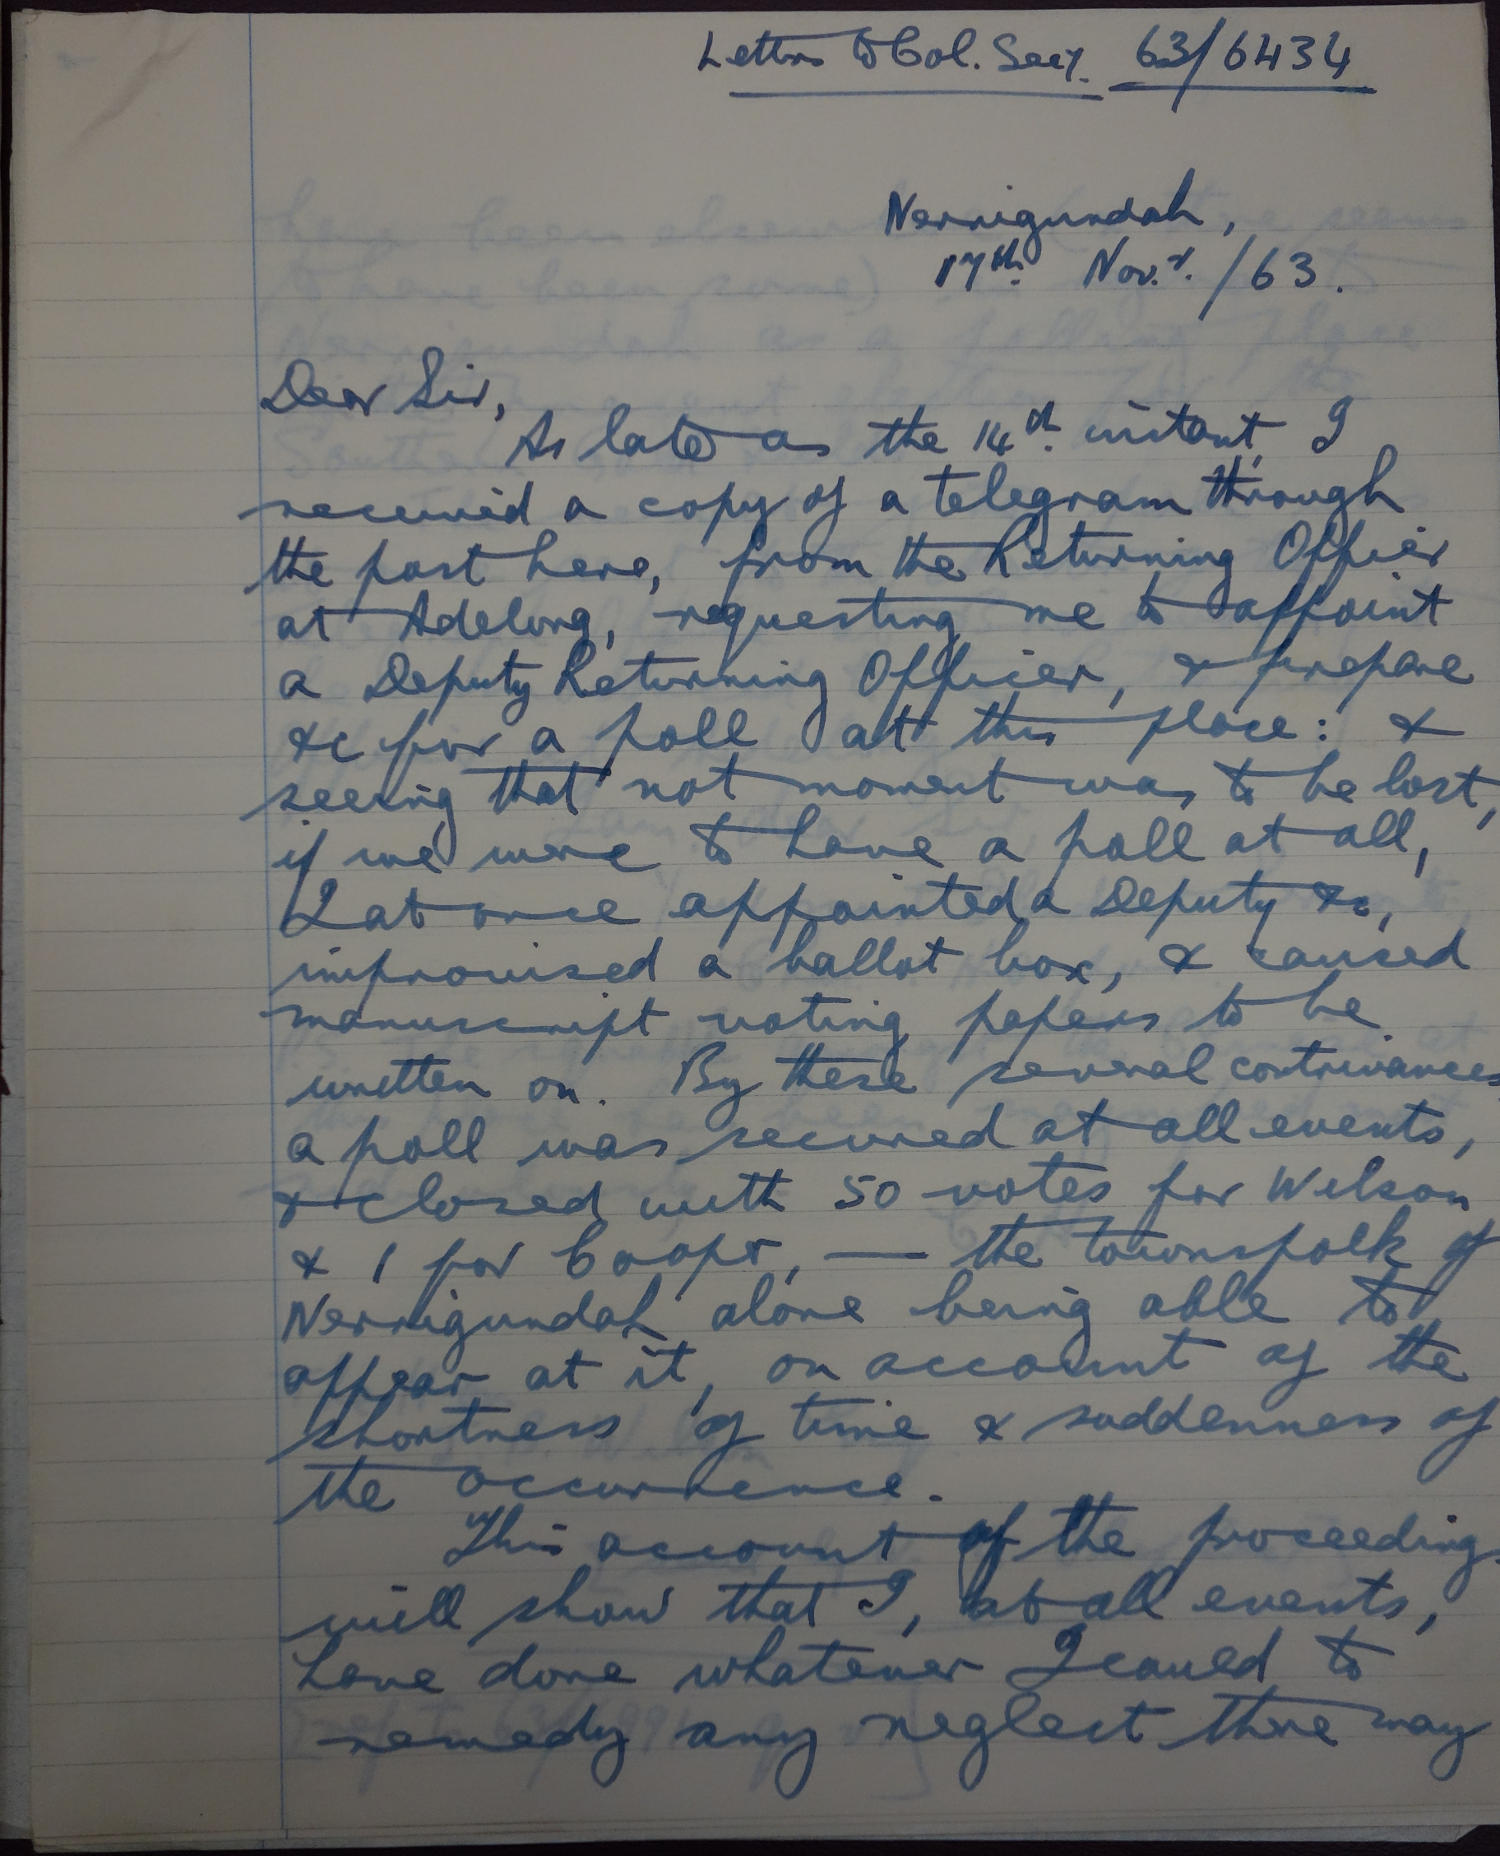 Letters to Col. Secy. 63/6434
Nerrigundah,
17th. Nov.r. /63.
Dear Sir,
As late as the 14th. instant, I
received a copy of a telegram through
the post here, from the Returning Officer
at Adelong, requesting me to appoint
a Deputy Returning Officer, & prepare
&c for a poll at this place: &
seeing that not moment was to be lost,
if we were to have a poll at all,
I at once appointed a Deputy &c,
improvised a ballot box, & caused
manuscript voting papers to be
written on. By these several contrivances
a poll was secured at all events,
& closed with 50 votes for Wilson
& 1 for Cooper, — the townsfolk of
Nerrigundah alone being able to
appear at it, on account of the
shortness of time & suddenness of
the occurrence.
This account of the proceedings
will show that I, at all events,
have done whatever I could to
remedy any neglect there may